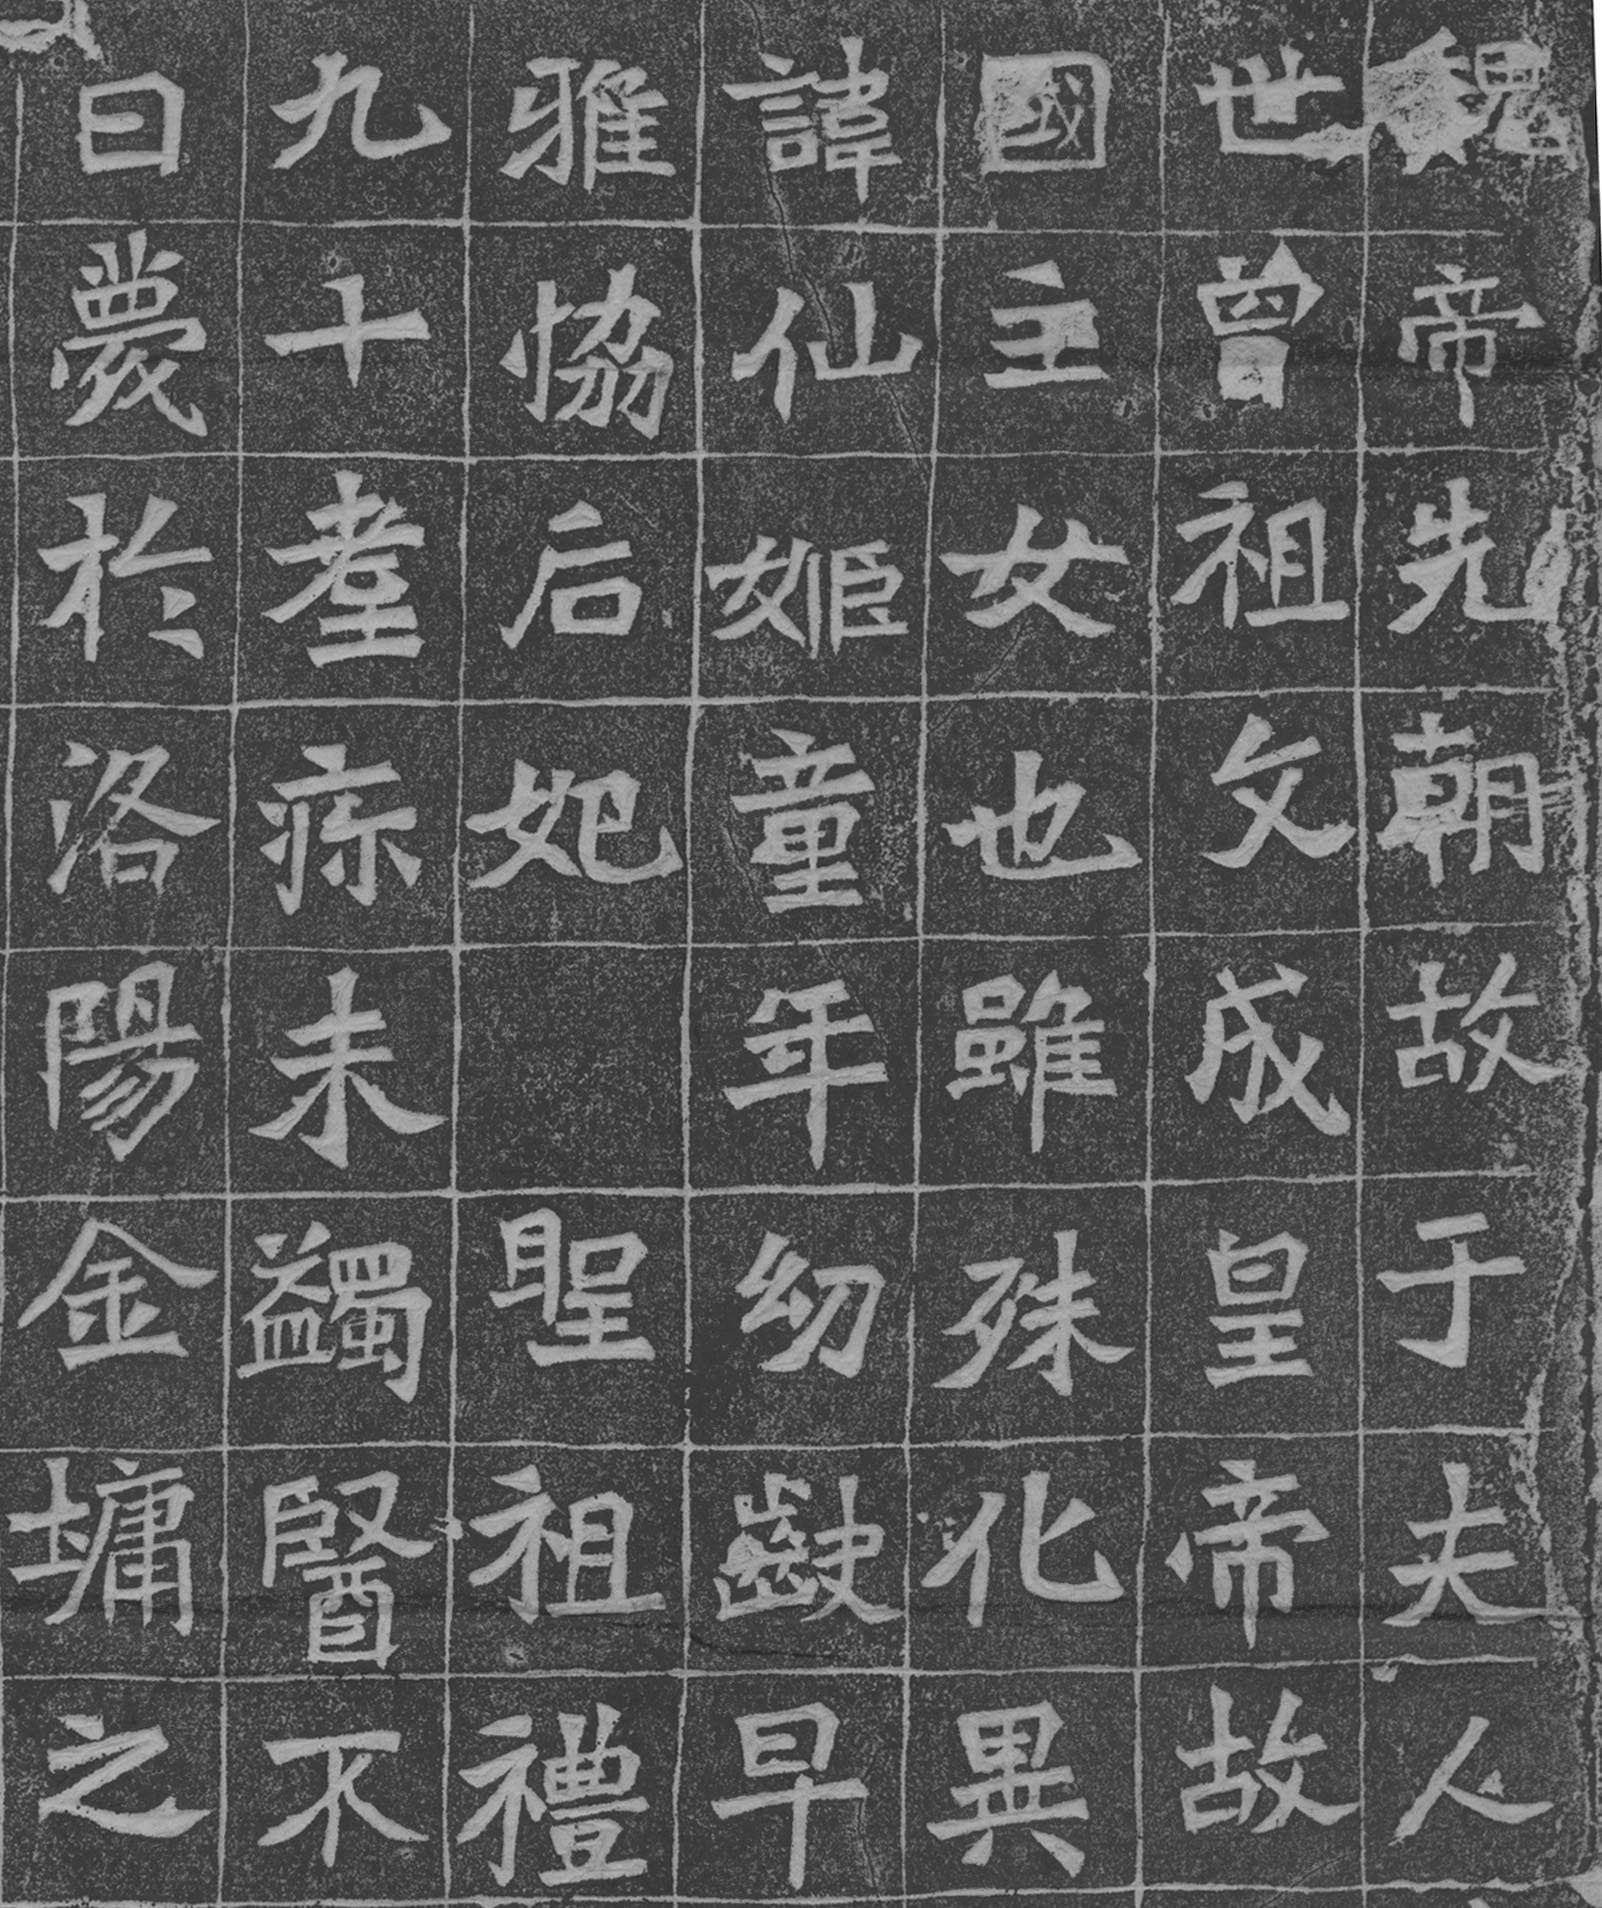 魏帝先朝故于夫人
世曾祖文成皇帝故
國主女也雖殊化異
諱仙姬童年幼齔早
雅協后妃 聖祖禮
九十耋疹未蠲醫不
日薨於洛陽金墉之